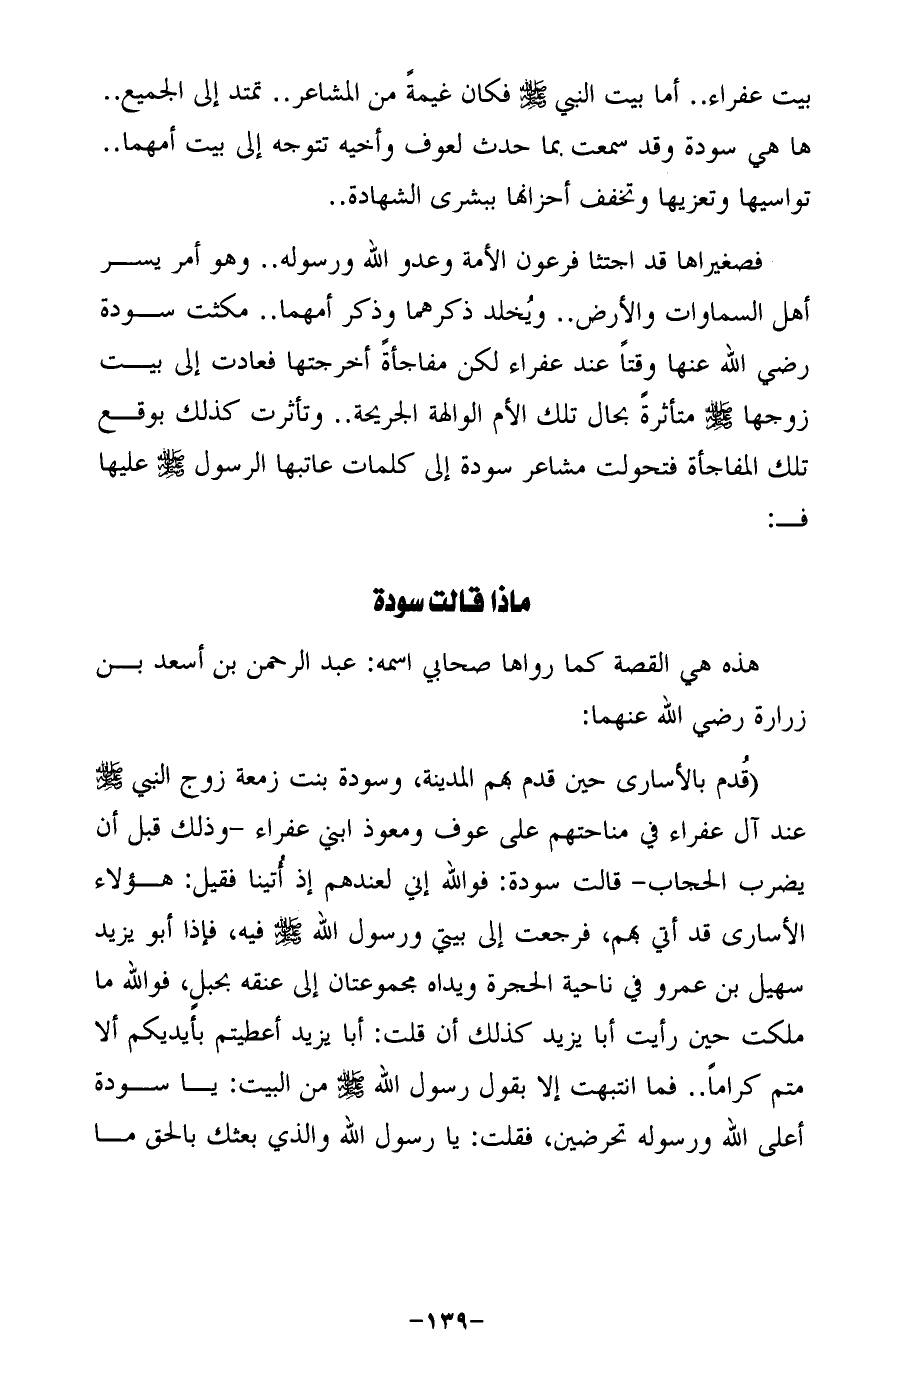 بيت عفراء.. أما بيت النبي ﷺ فكان غيمةً من المشاعر.. تمتد إلى الجميع..
ها هي سودة وقد سمعت بما حدث لعوف وأخيه تتوجه إلى بيت أمهما..
تواسيها وتعزيها وتخفف أحزانها ببشرى الشهادة..
فصغيراها قد اجتثا فرعون الأمة وعدو الله ورسوله.. وهو أمر يســر
أهل السماوات والأرض.. ويُخلد ذكرهما وذكر أمهما.. مكثت ســودة
رضي الله عنها وقتاً عند عفراء لكن مفاجأةً أخرجتها فعادت إلى بيــت
زوجها ﷺ متأثرةً بحال تلك الأم الوالهة الجريحة.. وتأثرت كذلك بوقــع
تلك المفاجأة فتحولت مشاعر سودة إلى كلمات عاتبها الرسول ﷺ عليها
فــ:
ماذا قالت سودة
هذه هي القصة كما رواها صحابي اسمه: عبد الرحمن بن أسعد بــن
زرارة رضي الله عنهما:
(قُدم بالأسارى حين قدم بهم المدينة، وسودة بنت زمعة زوج النبي ﷺ
عند آل عفراء في مناحتهم على عوف ومعوذ ابني عفراء -وذلك قبل أن
يضرب الحجاب- قالت سودة: فوالله إني لعندهم إذ أُتينا فقيل: هــؤلاء
الأسارى قد أتي بهم، فرجعت إلى بيتي ورسول الله ﷺ فيه، فإذا أبو يزيد
سهيل بن عمرو في ناحية الحجرة ويداه مجموعتان إلى عنقه بحبلٍ، فوالله ما
ملكت حين رأيت أبا يزيد كذلك أن قلت: أبا يزيد أعطيتم بأيديكم ألا
متم كراماً.. فما انتبهت إلا بقول رسول الله ﷺ من البيت: يــا ســودة
أعلى الله ورسوله تحرضين، فقلت: يا رسول الله والذي بعثك بالحق مــا
-١٣٩-